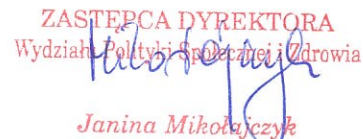 ZASTĘPCA DYREKTORA
Wydziału Polityki Społecznej i Zdrowia
Janina Mikołajczyk